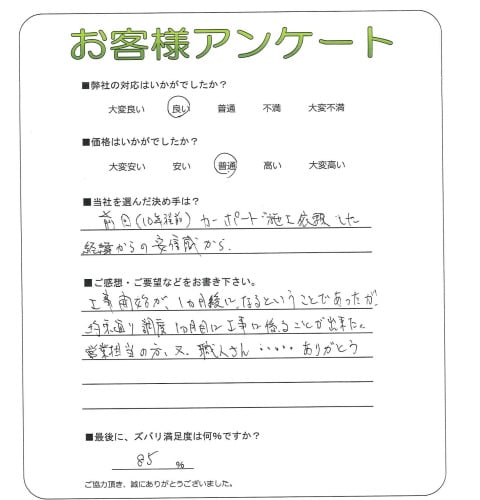 お客様アンケート
■弊社の対応はいかがでしたか？
大変良い 良い 普通 不満 大変不満
■価格はいかがでしたか？
大変安い 安い 普通 高い 大変高い
■当社を選んだ決め手は？
前回(10年程前) カーポート施工依頼した
経緯からの安信感から.
■ご感想・ご要望などをお書き下さい。
工事開始が、1ヵ月後になるということであったが、
約束通り 調度 1ヵ月目に工事に係ることが出来た。
営業担当の方、又、職人さん ‥‥‥ ありがとう
■最後に、ズバリ満足度は何％ですか？
85 ％
ご協力頂き、誠にありがとうございました。